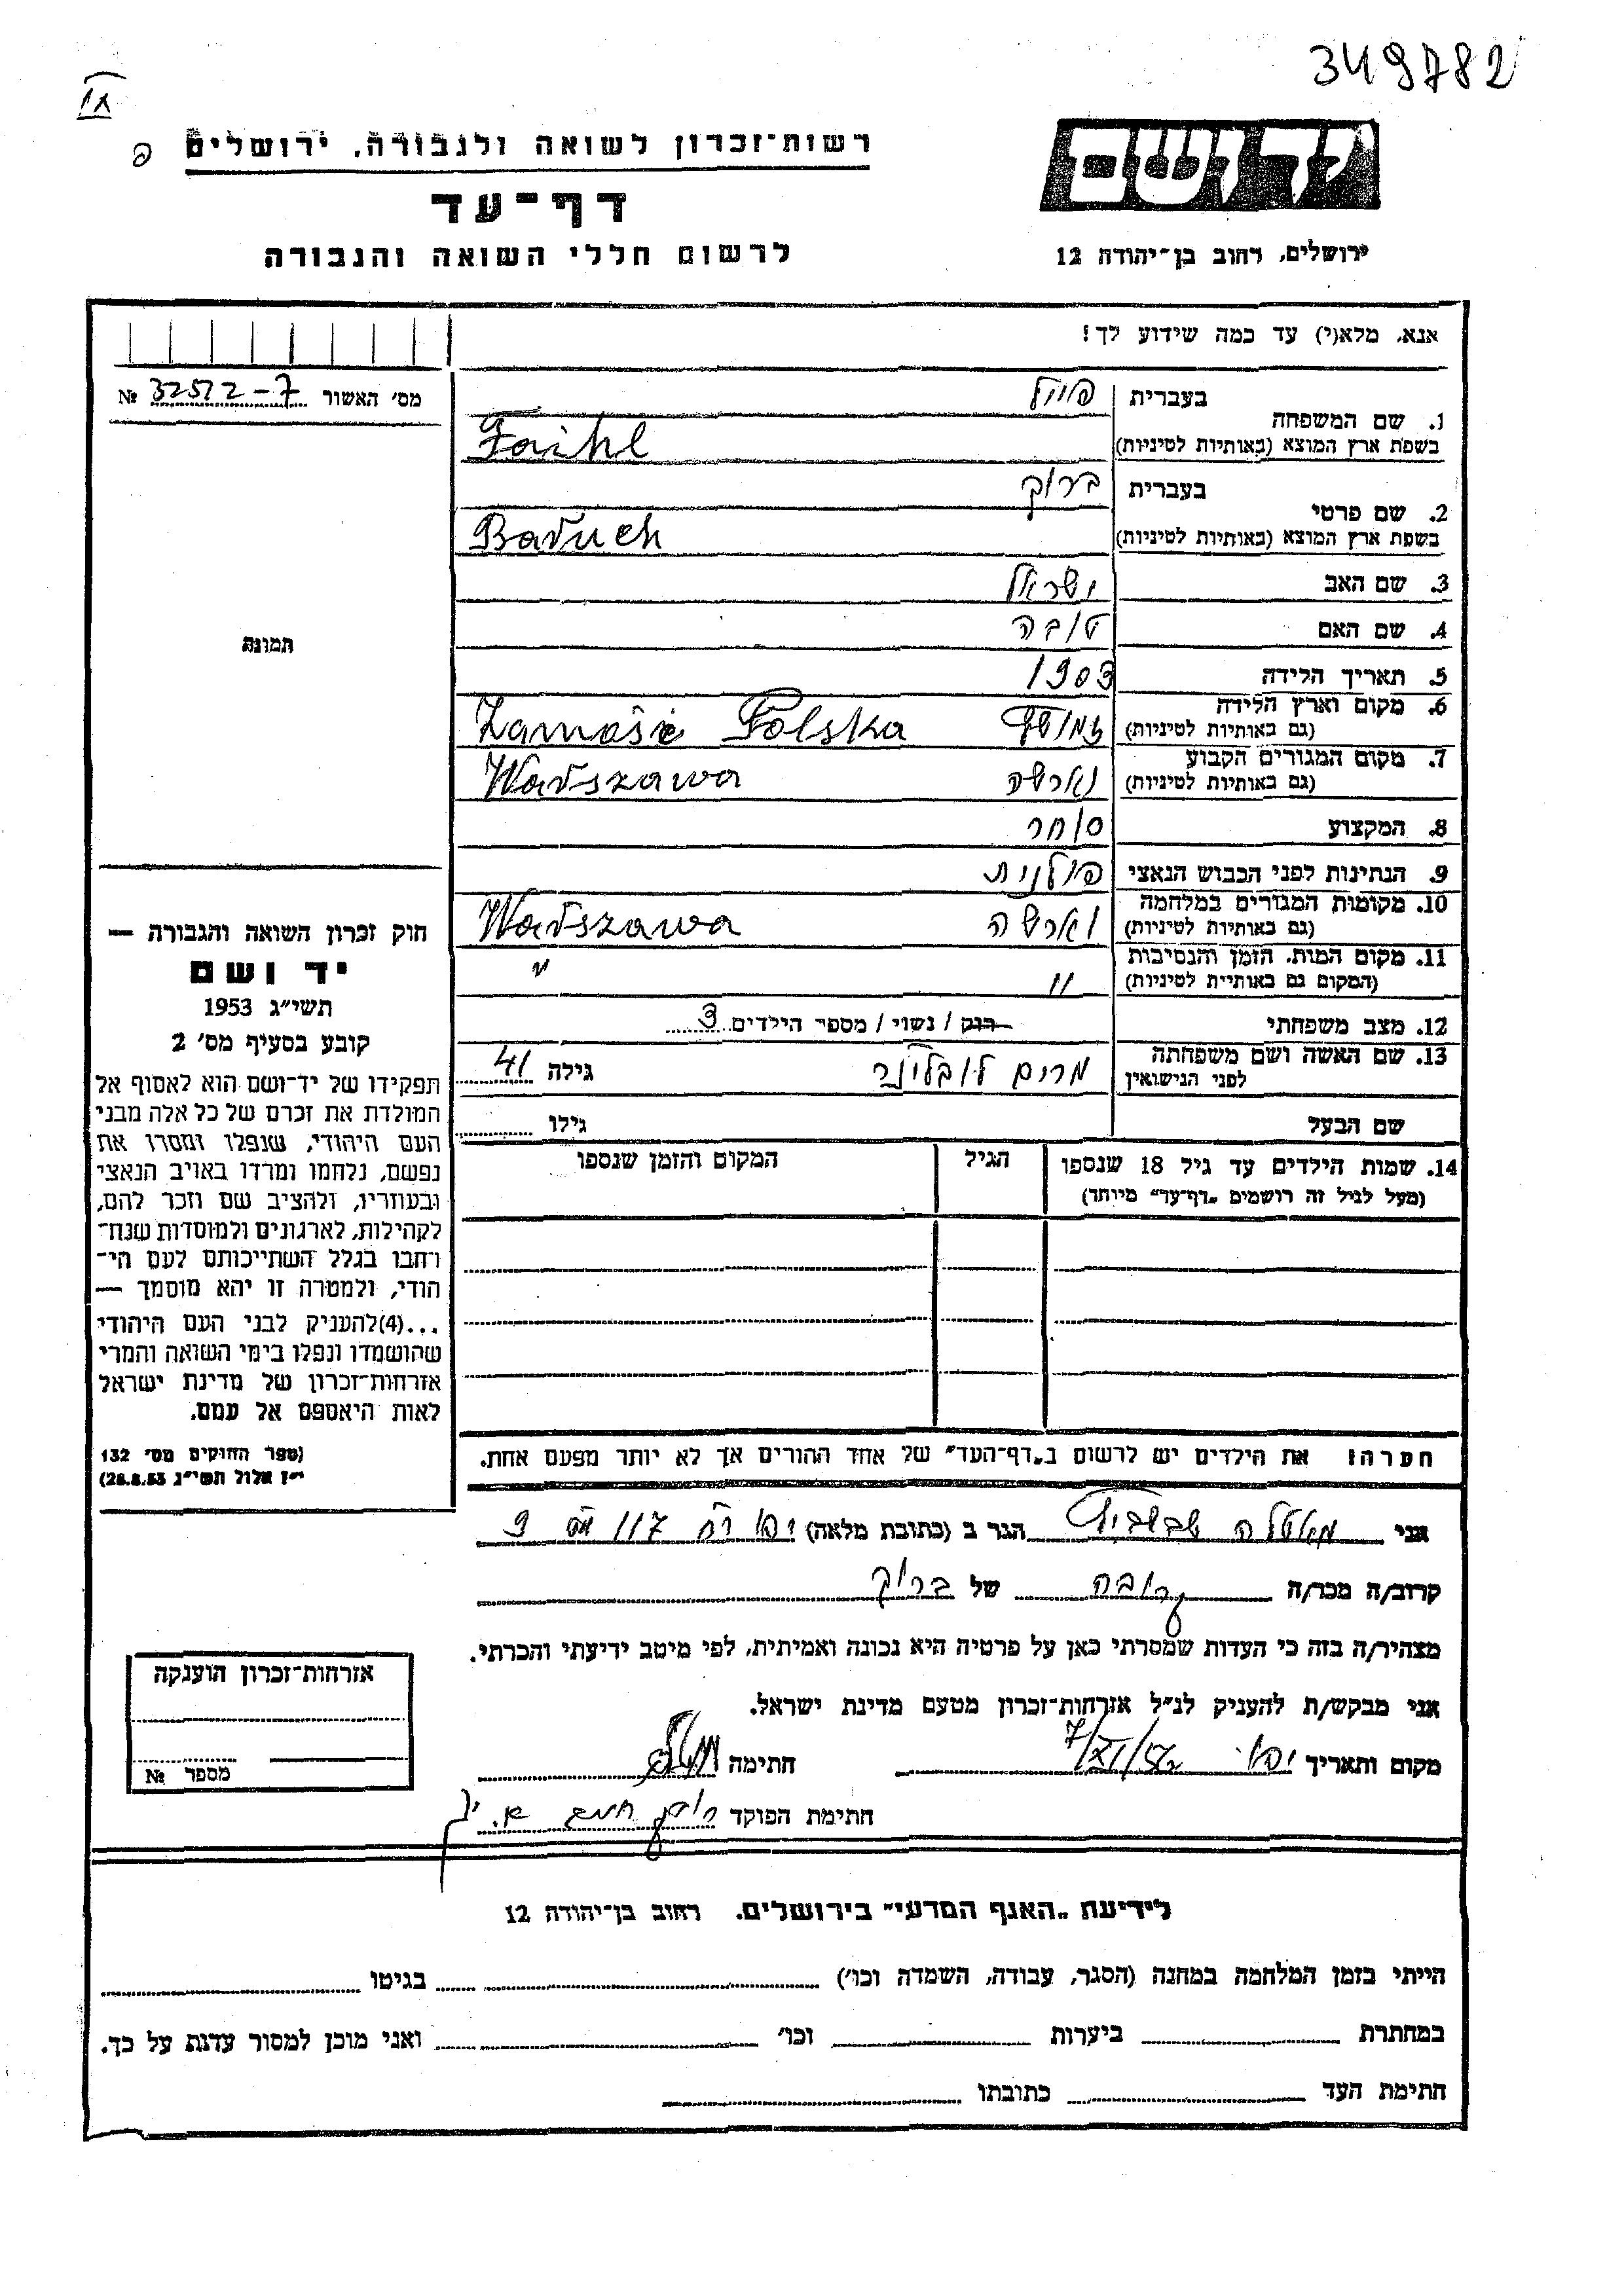 349782
רשות־זכרון לשואה ולגבורה, ירושלים
דף־עד
לרשום חללי השואה והגבורה
יד ושם
ירושלים, רחוב בן־יהודה 12
אנא, מלא(י) עד כמה שידוע לך!
מס׳ האשור № 32522-7
1. שם המשפחה
בעברית
בשפת ארץ המוצא (באותיות לטיניות) Faihl
2. שם פרטי
בעברית ברוך
בשפת ארץ המוצא (באותיות לטיניות) Baruch
3. שם האב ישראל
4. שם האם טובה
5. תאריך הלידה 1903
6. מקום וארץ הלידה
(גם באותיות לטיניות) Zamość Polska
7. מקום המגורים הקבוע
(גם באותיות לטיניות) ווארשה Warszawa
8. המקצוע סוחר
9. הנתינות לפני הכבוש הנאצי פולנית
10. מקומות המגורים במלחמה
(גם באותיות לטיניות) ווארשה Warszawa
11. מקום המות, הזמן והנסיבות
(המקום גם באותיית לטיניות) " "
12. מצב משפחתי רווק / נשוי / מספר הילדים 3
13. שם האשה ושם משפחתה
לפני הנישואין מרים לובלינר גילה 41
שם הבעל גילו
14. שמות הילדים עד גיל 18 שנספו
(מעל לגיל זה רושמים „דף־עד״ מיוחד)
הגיל
המקום והזמן שנספו
תמונה
חוק זכרון השואה והגבורה —
יד ושם
תשי״ג 1953
קובע בסעיף מס׳ 2
תפקידו של יד־ושם הוא לאסוף אל
המולדת את זכרם של כל אלה מבני
העם היהודי, שנפלו ומסרו את
נפשם, נלחמו ומרדו באויב הנאצי
ובעוזריו, ולהציב שם וזכר להם,
לקהילות, לארגונים ולמוסדות שנח־
רחבו בגלל השתייכותם לעם הי־
הודי, ולמטרה זו יהא מוסמך —
...(4)להעניק לבני העם היהודי
שהושמדו ונפלו בימי השואה והמרי
אזרחות־זכרון של מדינת ישראל
לאות היאספם אל עמם.
(ספר החוקים מס׳ 132
י״ז אלול תשי״ג 28.8.53)
הערה: את הילדים יש לרשום ב„דף־העד״ של אחד ההורים אך לא יותר מפעם אחת.
אני הגר ב (כתובת מלאה) יפו
קרוב/ה מכר/ה קרובה של ברוך
מצהיר/ה בזה כי העדות שמסרתי כאן על פרטיה היא נכונה ואמיתית, לפי מיטב ידיעתי והכרתי.
אני מבקש/ת להעניק לנ״ל אזרחות־זכרון מטעם מדינת ישראל.
מקום ותאריך יפו 7/XI/56 חתימה
חתימת הפוקד
אזרחות־זכרון הוענקה
מספר №
לידיעת „האגף המדעי״ בירושלים, רחוב בן־יהודה 12
הייתי בזמן המלחמה במחנה (הסגר, עבודה, השמדה וכו׳) בגיטו
במחתרת ביערות וכו׳ ואני מוכן למסור עדות על כך.
חתימת העד כתובתו